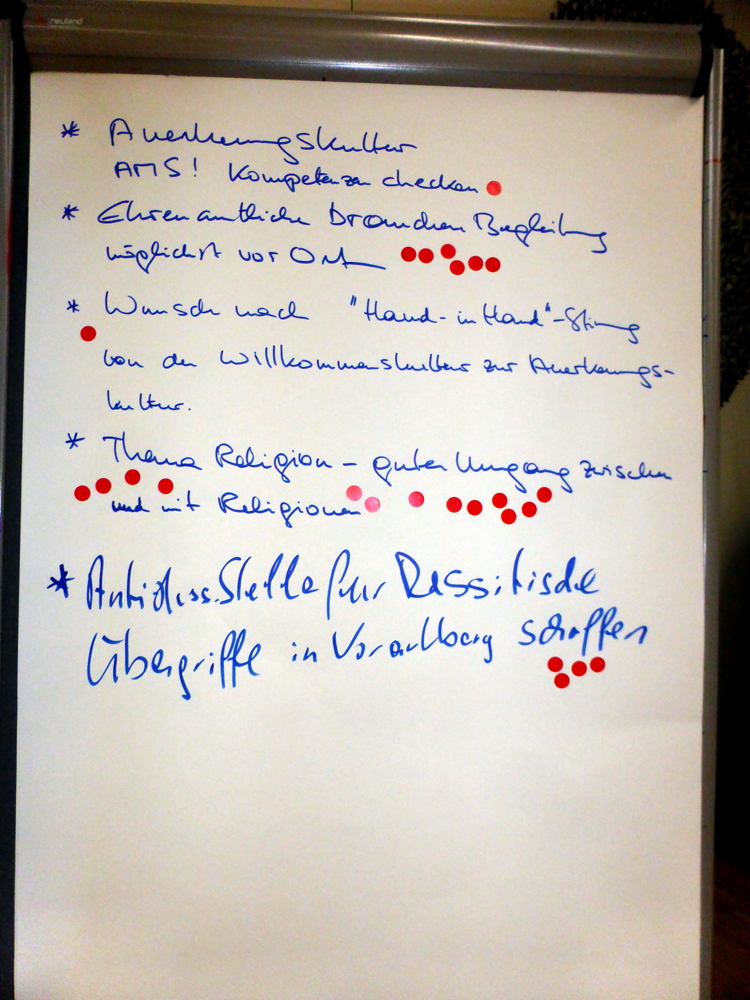 neuland
* Anerkennungskultur
AMS! Kompetenzen checken
* Ehrenamtliche brauchen Begleitung
möglichst vor Ort
* Wunsch nach "Hand-in Hand"-Stimmung
von der Willkommenskultur zur Anerkennungs-
kultur.
* Thema Religion - guter Umgang zwischen
und mit Religionen
* Antidiss. Stelle für Rassitische
Übergriffe in Vorarlberg schaffen